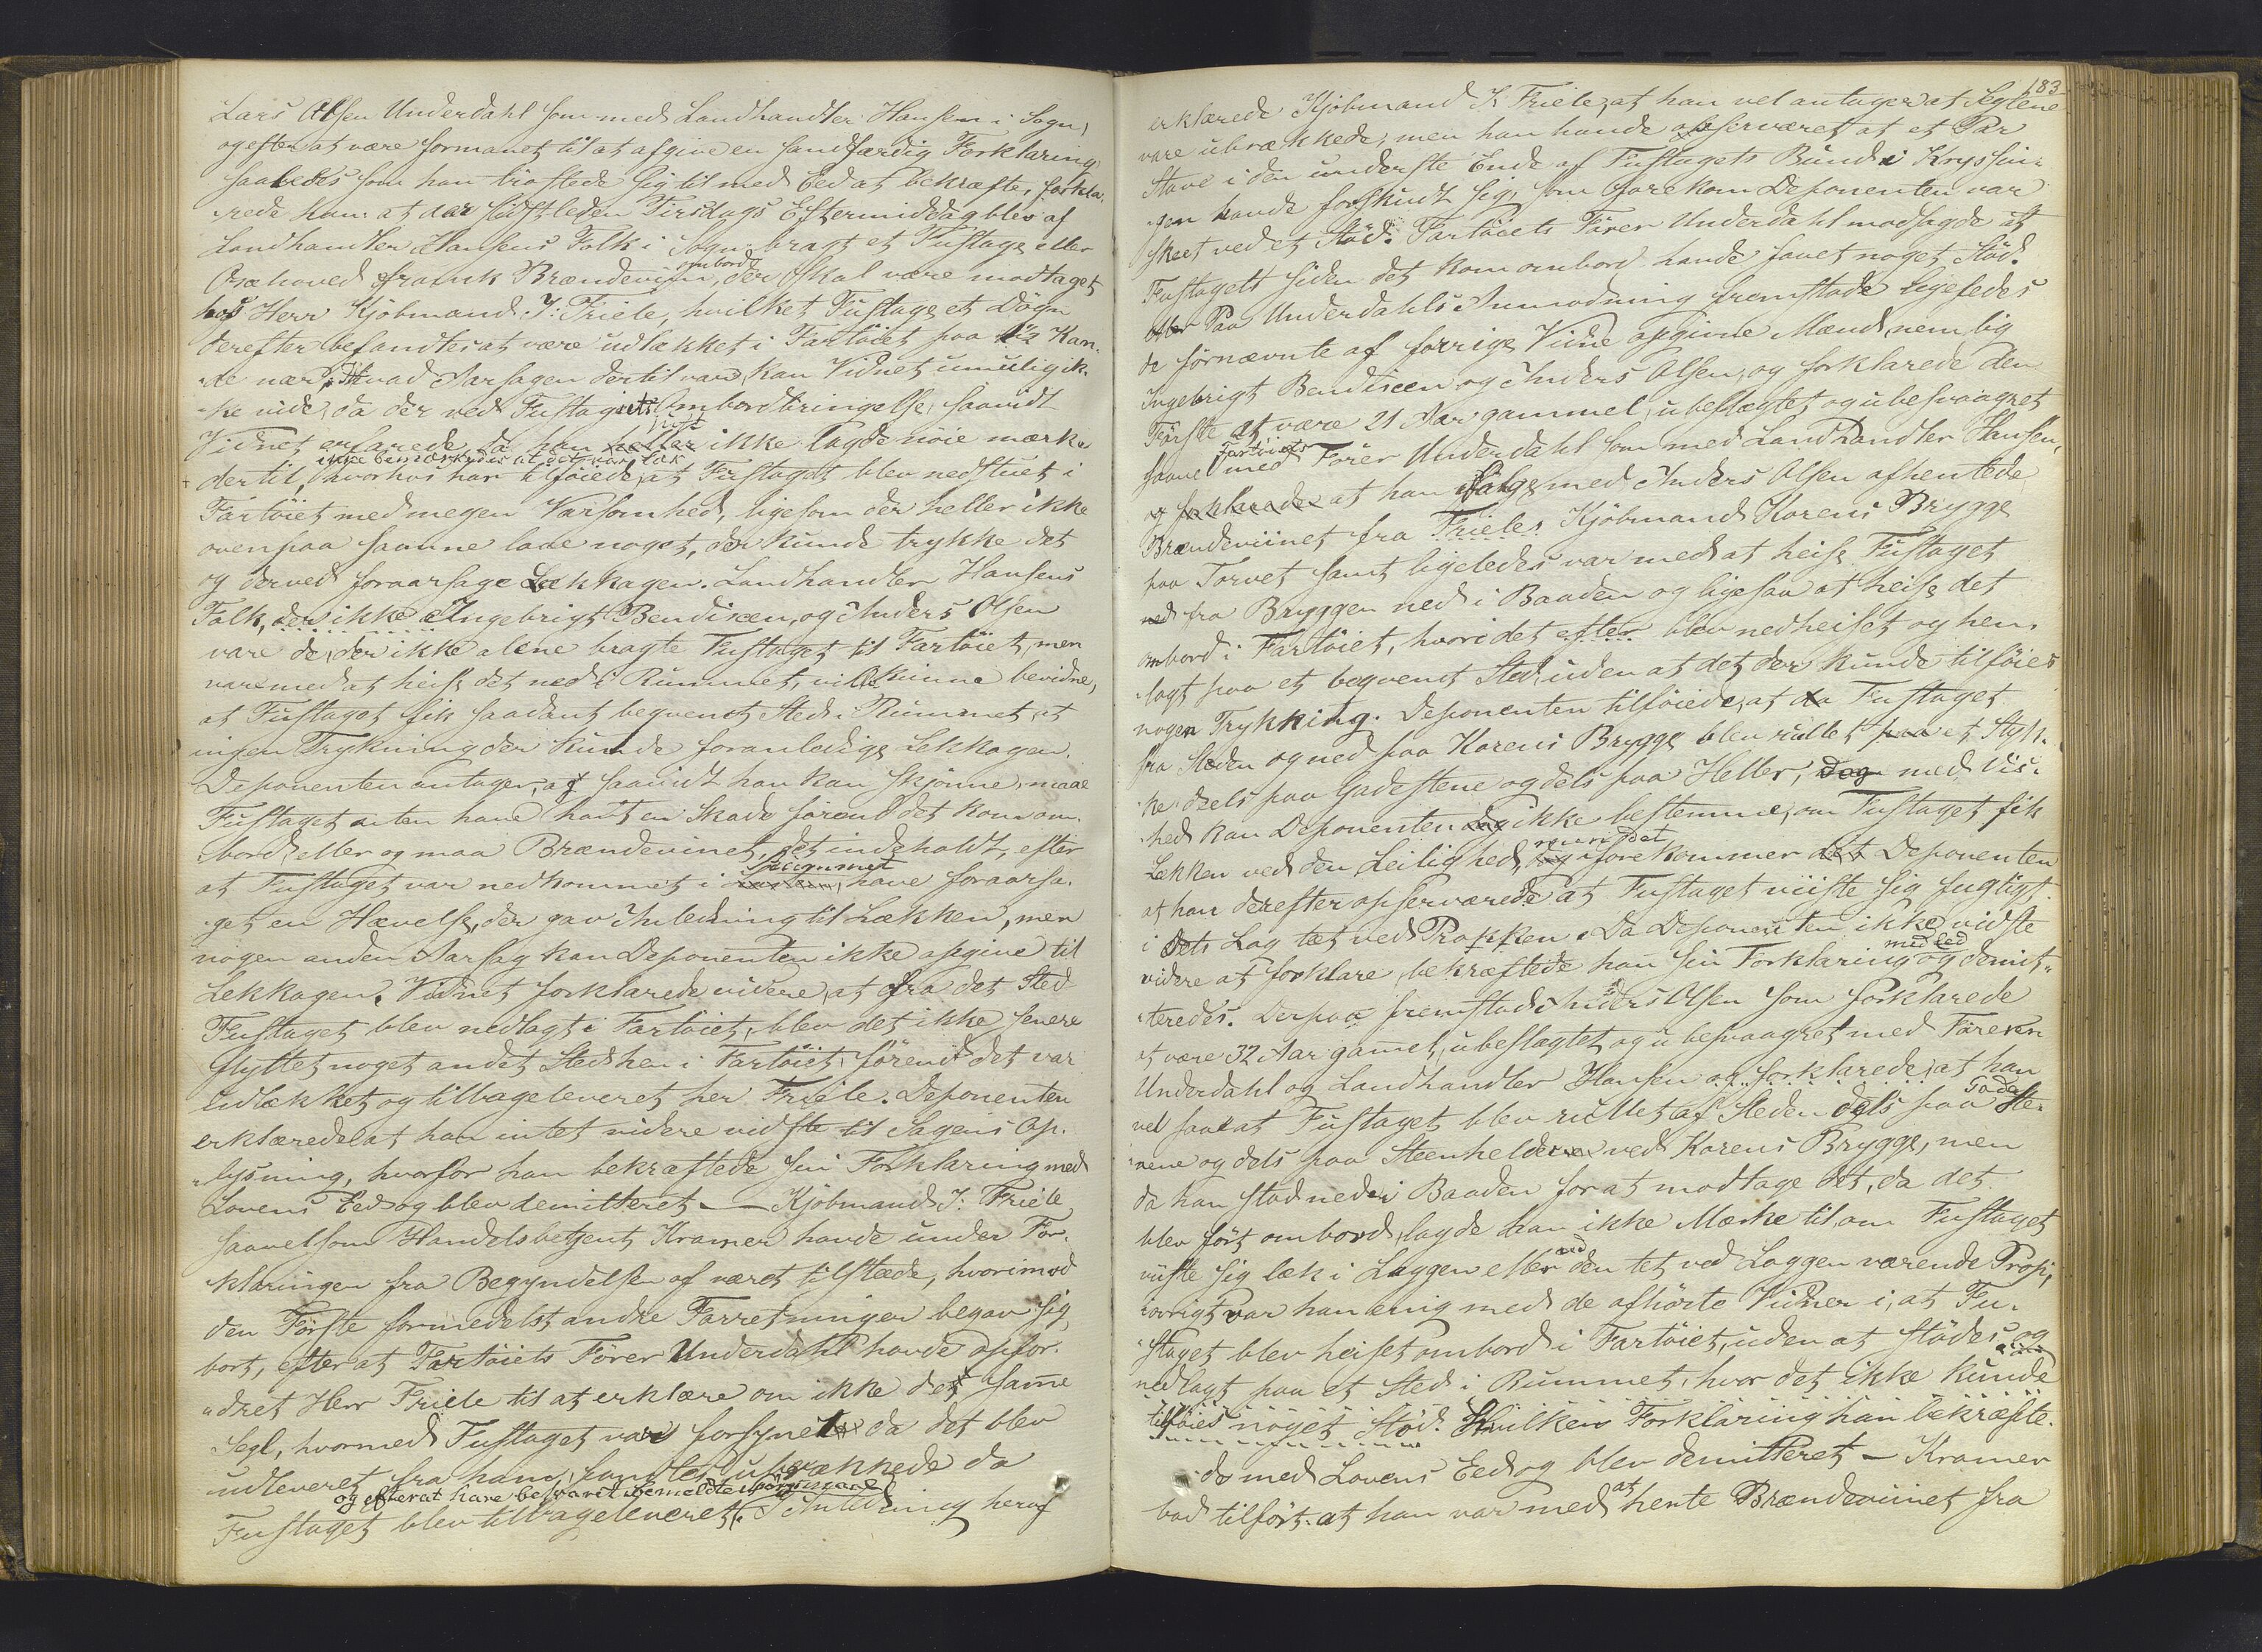 Lars Olsen Underdahl som med Landhandler Hansen i Sogn,
og efter at være formanet til at afgive en sandfærdig Forklaring
saaledes som han trøstede sig til med Eed at bekræfte, forkla-
rede han: at der sidstleden Tirsdags Eftermiddag blev af
Landhandler Hansens Folk i Sogn bragt et Fustage eller
Oxehoved fransk Brændeviin ombord, der skal være modtaget
hos Herr Kjøbmand J: Friele, hvilket Fustage et Døgn
derefter befandtes at være udlækket i Fartøiet paa Kan-
de nær; Hvad Aarsagen dertil var, kan Vidnet umulig ik-
ke vide, da der ved Fustagets Ombordbringelse, saavidt
Vidnet erfarede, da han heller ikke lagde nøie mærke
ikke bemærkedes at det var læk
dertil, hvorhos han tilføiede, at Fustaget blev nedstuet i
Fartøiet med megen Varsomhed, ligesom der heller ikke
ovenpaa samme laae noget, der kunde trykke det
og derved foraarsage Lækkagen. Landhandler Hansens
Folk, der ikke Ingebrigt Bendixen, og Anders Olsen
vare de, der ikke alene bragte Fustaget til Fartøiet, men
vare med at heise det ned i Rummet, ville kunne bevidne,
at Fustaget fik saadant beqvemt Sted i Rummet, at
ingen Trykning der kunde foranledige Lekkagen.
Deponenten antager, at saavidt han kan skjønne, maae
Fustaget enten have havt en Skade førend det kom om-
bord, eller og maa Brændevinet, det indeholdt, efter
at Fustaget var nedkommet i have foraarsa-
get en Hævelse, der gav Anledning til Lækken, men
nogen anden Aarsag kan Deponenten ikke opgive til
Lekkagen. Vidnet forklarede videre, at fra det Sted
Fustaget blev nedlagt i Fartøiet, blev det ikke senere
flyttet noget andet Sted hen i Fartøiet, førend det var
udlækket og tilbageleveret her Friele. Deponenten
erklærede at han intet videre vidste til Sagens Op-
lysning, hvorfor han bekræftede sin Forklaring med
Lovens Eed og blev demitteret — Kjøbmand J: Friele
saavelsom Handelsbetjent Kramer havde under For-
klaringen fra Begyndelsen af været tilstæde, hvorimod
den Første formedelst andre Forretninger begav sig
bort, efter at Fartøiets Fører Underdahl havde opfor-
dret Herr Friele til at erklære om ikke det samme
Segl, hvormed Fustaget var forsynet da det blev
udleveret fra ham, fandtes ubrækkede da
og efterat have besvaret bemeldte spørgsmaal
Fustaget blev tilbageleveret. I Anledning heraf
183
erklærede Kjøbmand J: Friele, at han vel antager at Seglene
vare ubrækkede, men han havde observeret at et Par
Stave i den underste Ende af Fustagets Bund i Kryssin-
gen havde forskudt sig, som forekom Deponenten var
skeet ved et Stød. Fartøiets Fører Underdahl modsagde at
Fustaget siden det kom ombord havde faaet noget Stød.
Paa Underdahls Anmodning fremstode ligeledes
de førnævnte af forrige Vidne opgivne Mænd, nemlig
Ingebrigt Bendixen og Anders Olsen, og forklarede den
Første at være 21 Aar gammel, ubeslægtet og ubesvaagret
saavel med Fartøiets Fører Underdahl som med Landhandler Hansen,
og forklarede at han ifølge med Anders Olsen afhentede
Brændeviinet fra Frieles Kjøbmand Korens Brygge
paa Torvet samt ligeledes var med at heise Fustaget
ned fra Bryggen ned i Baaden og ligesaa at heise det
ombord i Fartøiet, hvori det efter blev nedheiset og hen-
lagt paa et beqvemt Sted, uden at det der kunde tilføies
nogen Trykking. Deponenten tilføiede, at da Fustaget
fra Steden og ned paa Korens Brygge blev rullet paa et Styk-
ke, deels paa Gadestene og dels paa Heller, dog med Vis-
hed kan Deponenten ikke bestemme, om Fustaget fik
Lekken ved den Leilighed, men det forekommer det Deponenten
at han derefter observerede at Fustaget viiste sig fugtigt
i dets Lag tæt ved Proppen. Da Deponenten ikke vidste
videre at forklare, bekræftede han sin Forklaring med Eed og demit-
teredes. Derpaa fremstod Anders Olsen som forklarede
at være 32 Aar gammel, ubeslægtet og ubesvaagret med Føreren
Underdahl og Landhandler Hansen og forklarede, at han
vel saae at Fustaget blev rullet af Steden dels paa Gade Ste-
nene og dels paa Steenhelder ved Korens Brygge, men
da han stod nede i Baaden for at modtage det, da det
blev ført ombord, lagde han ikke Mærke til, om Fustaget
viiste sig læk i Laggen eller ved den tet ved Laggen værende Prop,
iøvrigt var han enig med de afhørte Vidner i, at Fu-
staget blev heiset ombord i Fartøiet, uden at stødes og
nedlagt paa et Sted i Rummet, hvor det ikke kunde
tilføies noget Stød. Hvilken Forklaring han bekræfte-
de med Lovens Eed og blev demitteret — Kramer
bad tilført: at han var med at hente Brændeviinet fra